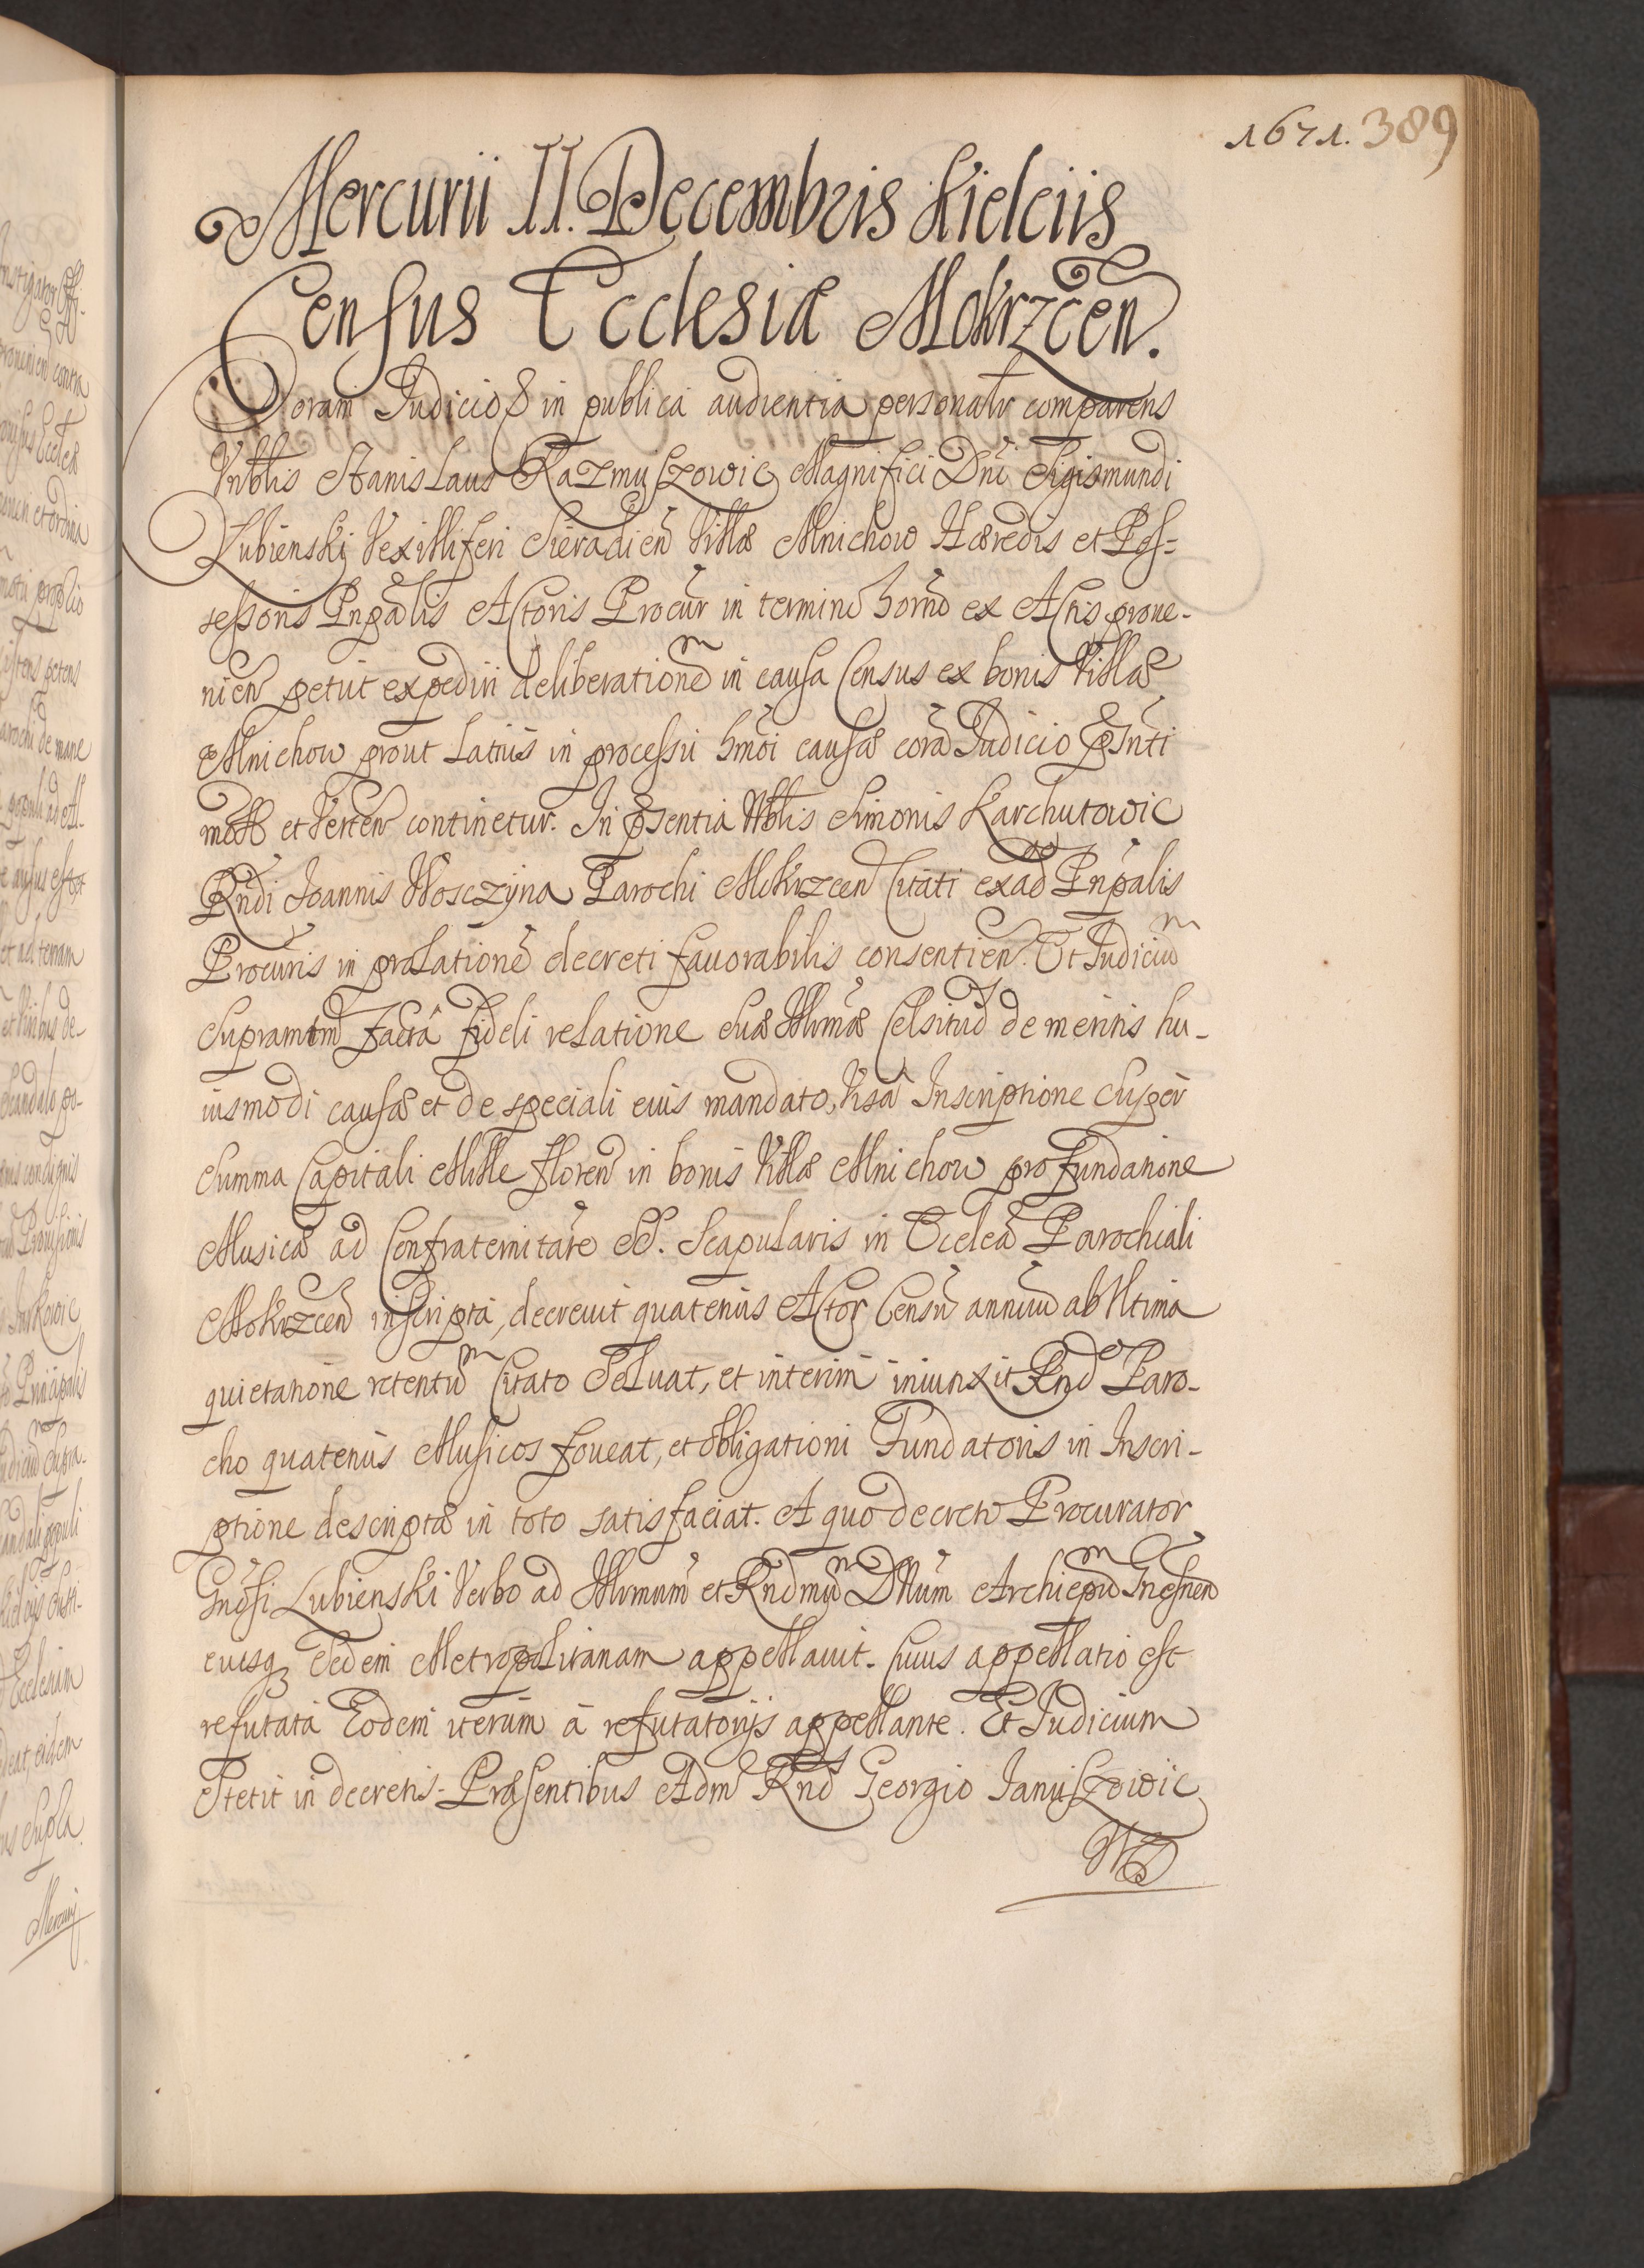 1671. 389
Mercurii II. Decembris Kielciis
Census Ecclesiæ Mokrzcen.
Coram Judicio & in publica audientia personalr comparens
Nblis Stanislaus Kazmuszowic Magnifici Dni Sigismundi
Lubienskj Vexilliferi Sieradien Villæ Mnichow Hæredis et Pos=
sessoris Prīpalis Actoris Procur in termino horno ex Actis prove-
nien petiit expediri deliberationem in causa Census ex bonis Villæ
Mnichow prout latius in processu hmōi causæ corā Judicio
mot et verten continetur. In præsentia Nblis Simonis Karchutowic
Rndi Joannis Wosczyna Parochi Mokrzcen Citati exad Prīpalis
Procuris in prolatione decreti favorabilis consentien. Et Judicium
Supramtm factâ fideli relatione Suæ Illrmæ Celsitud de meritis hu-
iusmodi causæ et de speciali eius mandato, visa Inscriptione super
Summa Capitali Mille floren in bonis Villæ Mnichow pro fundatione
Musicæ ad Confraternitate SS. Scapularis in Ecclea Parochiali
Mokrzcen inscripta, decrevit quatenus Actor Censū annuū ab Ultima
quietatione retentum Citato Solvat, et interim iniunxit Rndo Paro-
cho quatenus Musicos foveat, et obligationi Fundatoris in Inscri-
ptione descriptæ in toto satisfaciat. A quo decreto Procurator
Gnosi Lubienski Verbo ad Illrmum et Rndmum DNum Archiepum Gnesnen
eiusq Sedem Metropolitanam appellavit. Cuius appellatio est
refutata Eodem iterum à refutatorijs appellante. Et Judicium
Stetit in decretis. Præsentibus Adm Rnd Georgio Januszowic